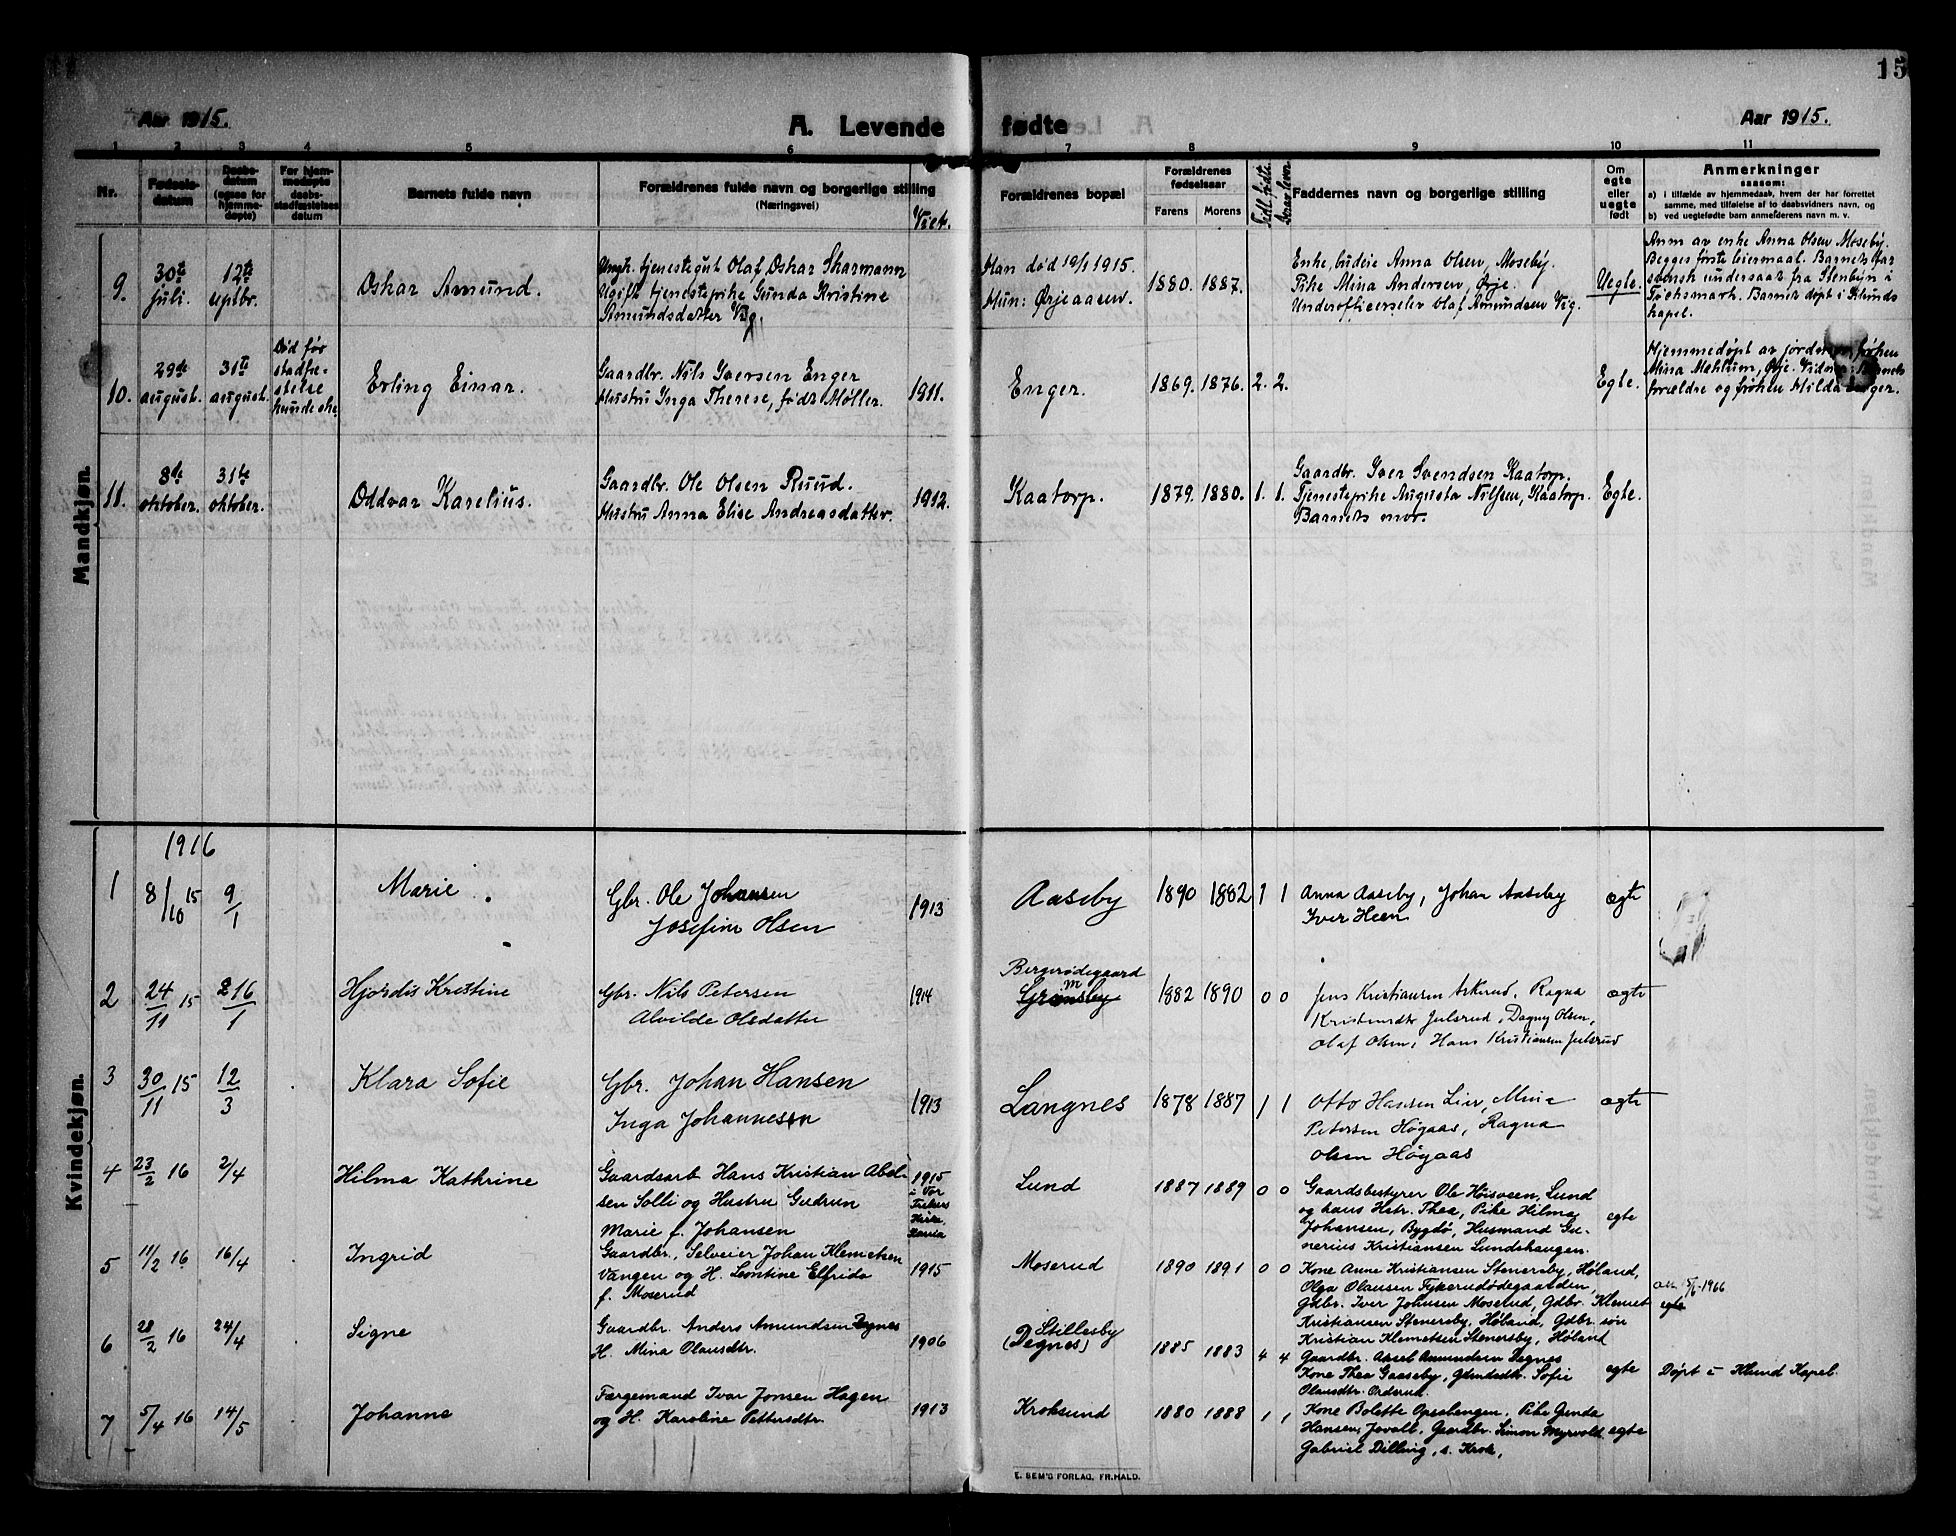 15
Aar 1915.
A. Levende fødte
Aar 1915.
1 2 3 4 5 6 7 8 9 10 11
Nr.
Fødselsdatum
Daabsdatum (ogsaa for hjemmedøpte)
For hjemmedøpte daabsstadfæstelses datum
Barnets fulde navn
Forældrenes fulde navn og borgerlige stilling
(Næringsvei)
Viet.
Forældrenes bopæl
Forældrenes fødselsaar
Farens
Morens
Tidl. fødte.
Derav lever.
Faddernes navn og borgerlige stilling
Om egte eller uegte født
Anmerkninger
saasom:
a) i tilfælde av hjemmedaab, hvem der har forrettet
samme, med tilføielse av to daabsvidners navn, og
b) ved uegtefødte barn anmelderens navn m. v.
Mandkjøn.
9.
30te juli.
12te septbr.
Oskar Amund.
Ungk. tjenestegut Olaf Oskar Skarmann
Ugift tjenestepike Gunda Kristine
Amundsdatter Vig.
Han død 19/1 1915.
Hun: Ørjeaasen.
1880. 1887.
Enke, budeie Anna Olsen, Moseby.
Pike Mina Andersen, Ørje.
Underofficerselev Olaf Amundsen Vig.
Uegte.
Anm av enke Anna Olsen Moseby.
Begges første leiermaal. Barnets far
svensk undersaat fra Stenbyn i
Töcksmark. Barnet døpt i Klunds
kapel.
10.
29de august.
31te august.
Død før
stadfæ-
stelse
kunde ske
Erling Einar.
Gaardbr. Nils Iversen Enger
Hustru Inga Therese, født Møller.
1911.
Enger.
1869. 1876. 2. 2.
Egte.
Hjemmedøpt av jordmor, frøken
Mina Mehlum, Ørje. Vidner: Barnets
forældre og frøken Hilda Enger.
11.
8de oktober.
31te oktober.
Oddvar Karelius.
Gaardbr. Ole Olsen Ruud.
Hustru Anna Elise Andreasdatter.
1912.
Kaatorp.
1879. 1880. 1. 1.
Gaardbr. Iver Svendsen Kaatorp.
Tjenestepike Augusta Nilsen, Kaatorp.
Barnets mor.
Egte.
Kvindekjøn.
1916
1
8/10 15
9/1
Marie.
Gbr. Ole Johansen
Josefine Olsen
1913
Aaseby
1890 1882 1 1
Anna Aaseby, Johan Aaseby
Iver Heen
ægte
2
24/11 15
16/1
Hjördis Kristine
Gbr. Nils Petersen
Alvilde Olsdatter
1914
Bergerødegaard
1882 1890 0 0
Jens Kristiansen Askerud, Ragna
Kristiansdtr Julsrud, Dagny Olsen,
Olaf Olsen, Hans Kristiansen Julsrud
ægte
3
30/11 15
12/3
Klara Sofie
Gbr. Johan Hansen
Inga Johannesen
1913
Langnes
1878 1887 1 1
Otto Hansen Lier, Mina
Petersen Høgaas, Ragna
Olsen Høgaas
ægte
4
23/2 16
2/4
Hilma Kathrine
Gaardsarb Hans Kristian Abel-
sen Solli og Hustru Gudrun
Marie f. Johansen
1915
i Vor
Frelsers
Kirke
Lund
1887 1889 0 0
Gaardsbestyrer Ole Høisveen, Lund
og hans Hstr. Thea, Pike Hilma
Johansen, Bygdø, Husmand Gu-
nerius Kristiansen Lundshaugen.
egte
5
11/2 16
16/4
Ingrid
Gaardbr., Selveier Johan Klemetsen
Vangen og H. Leontine Elfrida
f. Moserud
1915
Moserud
1890 1891 0 0
Kone Anne Kristiansen Stenersby, Høland,
Olga Olausen Fykerudødegaarden,
Gdbr. Iver Johnsen Moserud, Gdbr. Klemet
Kristiansen Stenersby, Høland, Gdbr søn
Kristian Klemetsen Stenersby, Høland
egte
1966
6
28/2 16
24/4
Signe
Gaardbr. Anders Amundsen Degnes
H. Mina Olausdtr.
1906
Stillesby
(Degnes)
1885 1883 4 4
Gaardbr. Aksel Amundsen Degnes
Kone Thea Gaaseby, Sofie
Olausdtr. Orderud.
egte
Døpt i Klund Kapel.
7
5/4 16
14/5
Johanne
Færgemand Ivar Jonsen Hagen
og H. Karoline Pettersdtr.
1913
Kroksund
1880 1888 1 1
Kone Bolette Opsalengen, Pike Gunda
Hansen, Jovall, Gaardbr. Simon Myrvold
Gabriel Dilling, s. Krok,
egte
E. SEM'S FORLAG, FR.HALD.